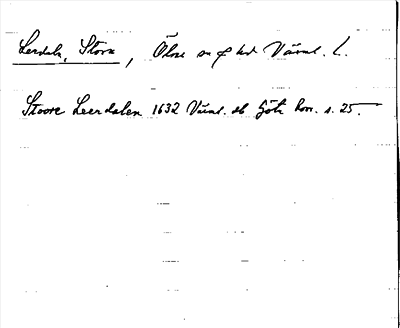 Lerdala, Stora, Ölme sn o hd Värml. l.
Stoore Leerdalen 1632 Värml. ob Götz kor. s. 25.